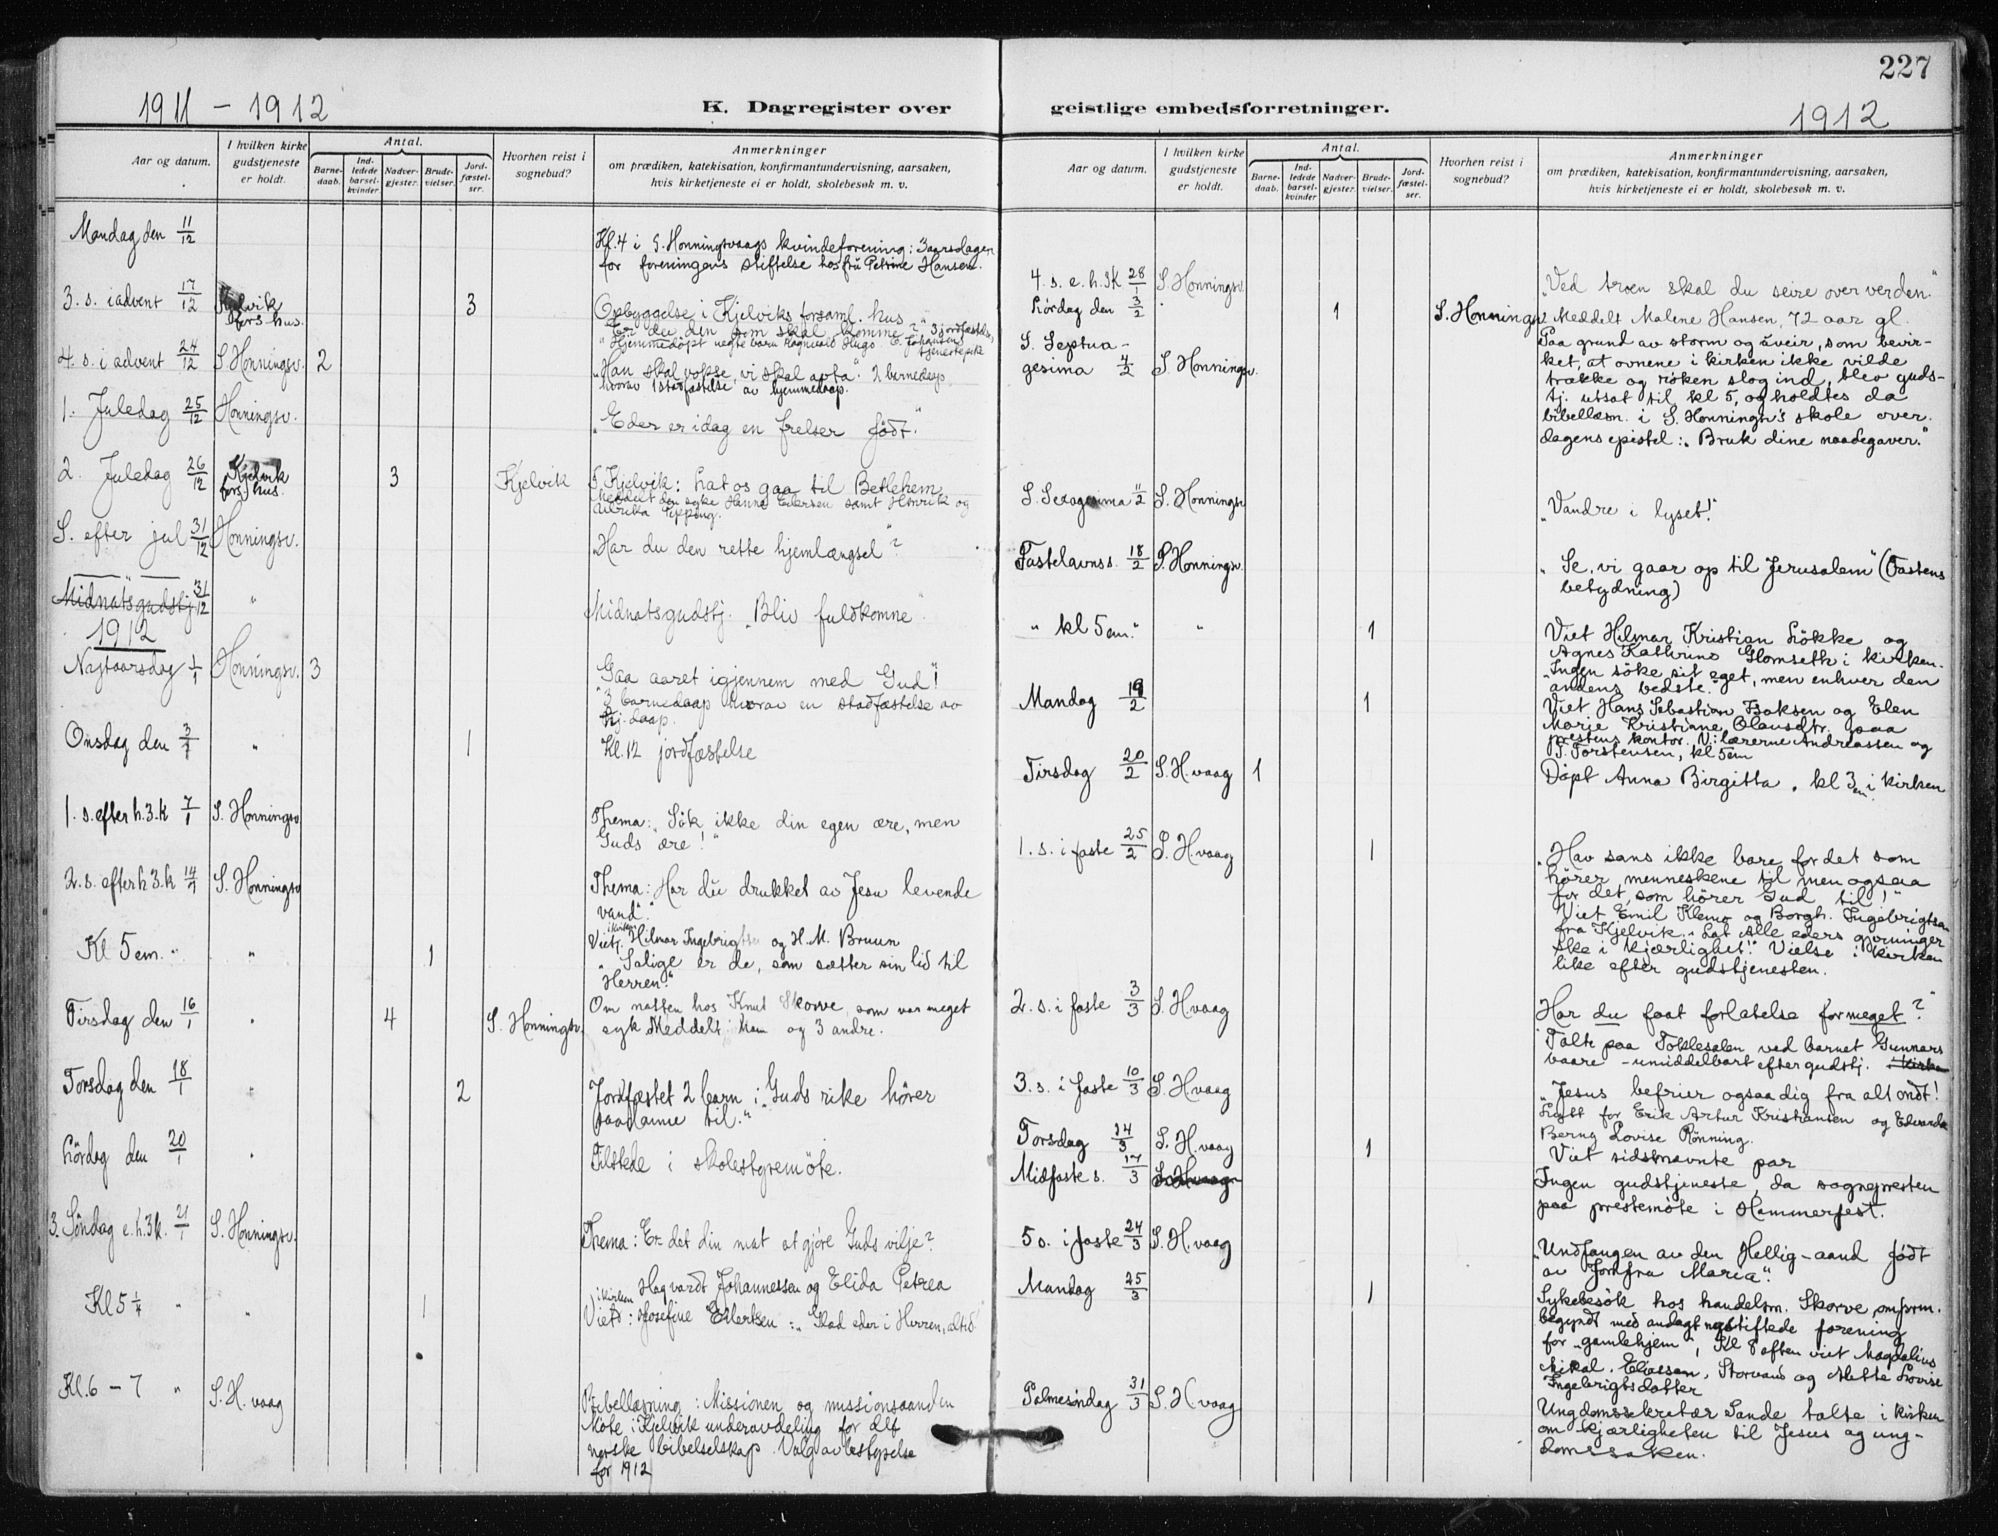 227
1911 - 1912
K. Dagregister over
Aar og datum.
I hvilken kirke
gudstjeneste
er holdt.
Antal.
Barne-
daab.
Ind-
ledede
barsel-
kvinder
Nadver-
gjester.
Brude-
vielser.
Jord-
fæstel-
ser.
Hvorhen reist i
sognebud?
Anmerkninger
om prædiken, katekisation, konfirmantundervisning, aarsaken,
hvis kirketjeneste ei er holdt, skolebesøk m. v.
Mandag den 11/12
Kl. 4 i S. Honningsvaags kvindeforening: 3 aarsdagen
for foreningens stiftelse hos fru Petrine Hansen.
3. s. i advent 17/12 Kjelvik
fors. hus. 3 Opbyggelse i Kjelviks forsaml. hus
"Er du den som skal komme?" 3 jordfæstels.
Hjemmedøpt uegte barn Ragnvald Hugo
4. s. i advent 24/12 S Honningsv. 2 "Han skal vokse, vi skal avta". 2 barnedaap
hvorav 1 stadfæstelse av hjemmedaap.
1. Juledag 25/12 Honningsv. "Eder er idag en frelser født."
2. Juledag 26/12 Kjelvik
fors. hus. 3 Kjelvik S. Kjelvik: Lat os gaa til Betlehem
Meddelt den syke Hanna Eilersen samt Henrik og
S. efter jul 31/12 Honningsv. "Har du den rette hjemlængsel"?
Midnatsgudstj. 31/12 " Midnatsgudstj. "Bliv fuldkomne"
1912
Nyttaarsdag 1/1 Honningsv. 3 Gaa aaret igjennem med Gud!
3 barnedaap hvorav en stadfæstelse av
hj. daap.
Onsdag den 3/1 " 1 Kl. 12 jordfæstelse
1. s. efter h. 3. k 7/1 S. Honningsv Thema: "Søk ikke din egen ære, men
Guds ære!"
2. s. efter h 3. k 14/1 S. Honningsv Thema: Har du drukket av Jesu levende
vand".
Kl 5 em. " " 1 i kirken
Viet: Hilmar Ingebrigtsen og H. M. Bruun
"Salige er de, som sætter sin lid til
Herren."
Tirsdag den 16/1 " 4 S. Honningsv. Om natten hos Knut Skorve, som var meget
syk Meddelt: ham og 3 andre.
Torsdag den 18/1 " 2 Jordfæstet 2 barn; "Guds rike hører
saadanne til."
Lördag den 20/1 " Tilstede i skolestyremöte.
3. Söndag e. h. 3 k. 21/1 S. Honningsv. Thema: Er det din mat at gjøre Guds vilje?
Kl 5 1/4 " " 1 i kirken Hagvardt Johannessen og Elida Petrea
Viet: Josefine Eilertsen: "Glad eder i Herren, altid"
Kl. 6 - 7 " S. H. vaag Bibellæsning: Missionen og missionsaanden
Möte i Kjelvik underavdeling for det
norske bibelselskap. Valg av bestyrelse
for 1912
geistlige embedsforretninger.
1912
Aar og datum.
I hvilken kirke
gudstjeneste
er holdt.
Antal.
Barne-
daab.
Ind-
ledede
barsel-
kvinder
Nadver-
gjester.
Brude-
vielser.
Jord-
fæstel-
ser.
Hvorhen reist i
sognebud?
Anmerkninger
om prædiken, katekisation, konfirmantundervisning, aarsaken,
hvis kirketjeneste ei er holdt, skolebesøk m. v.
4. s. e. h. 3K 28/1 S. Honningsv. "Ved troen skal du seire over verden."
Lördag den 3/2 " 1 S. Honningsv Meddelt Malene Hansen, 72 aar gl.
S. Septua-
gesima 4/2 S. Honningsv. Paa grund av storm og uveir, som bevir-
ket, at ovnene i kirken ikke vilde
trække og röken slog ind, blev guds-
tj. utsat til kl 5, og holdtes da
bibellæsn. i S. Honningsv's skole over
dagens epistel: "Bruk dine naadegaver."
S. Sexagesima 11/2 S. Honningsv "Vandre i lyset!"
Fastelavns s. 18/2 S. Honningsv. "Se, vi gaar op til Jerusalem" (Fastens
betydning)
" kl 5 em. " " 1 Viet Hilmar Kristian Løkke og
Agnes Kathrine Glomseth i kirken.
"Ingen söke sit eget, men enhver den
andens bedste."
Mandag 19/2 1 Viet Hans Sebastian Isaksen og Elen
Marie Kristianne Olausdtr. paa
prestens kontor. V: lærerne Andreassen og
T. Torstensen, kl 5 em
Tirsdag 20/2 S. H. vaag 1 Döpt Anna Birgitta. kl 3 em i kirken
1. s. i faste 25/2 S. H. vaag 1 "Hav sans ikke bare for det som
hörer menneskene til men ogsaa
for det, som hörer Gud til!"
Viet Emil Klemo og Borgh. Ingebrigtsen
fra Kjelvik. "Lat alle eders gjerninger
ske i kjærlighet!" Vielse i kirken
like efter gudstjenesten.
2. s. i faste 3/3 S. H. vaag Har du faat forlatelse for meget?
Talte paa Toklesalen ved barnet Gunnars
baare - umiddelbart efter gudstj.
3. s. i faste 10/3 S. H. vaag "Jesus befrier ogsaa dig fra alt ondt!
Lyst for Erik Artur Kristiansen og Edvarda
Berna Lovise Rönning.
Torsdag 14/3 S. H. vaag 1 Viet sidstnævnte par
Midfaste s. 17/3 S. H. vaag Ingen gudstjeneste, da sognepresten
paa prestemöte i Hammerfest.
5 s. i faste 24/3 S. H. vaag "Undfangen av den Hellig-aand födt
av Jomfru Maria".
Mandag 25/3 1 Sykebesök hos handelsm. Skorve, om form.
begyndt med andagt nystiftede forening
for "gamlehjem", Kl 8 aften viet Magdalius
Mikal Eliassen, Storvand og Mette Lovise
Ingebrigtsdatter
Palmesöndag 31/3 S. H. vaag Ungdomssekretær Sande talte i kirken
om kjærligheten til Jesus og ung-
domssaken.